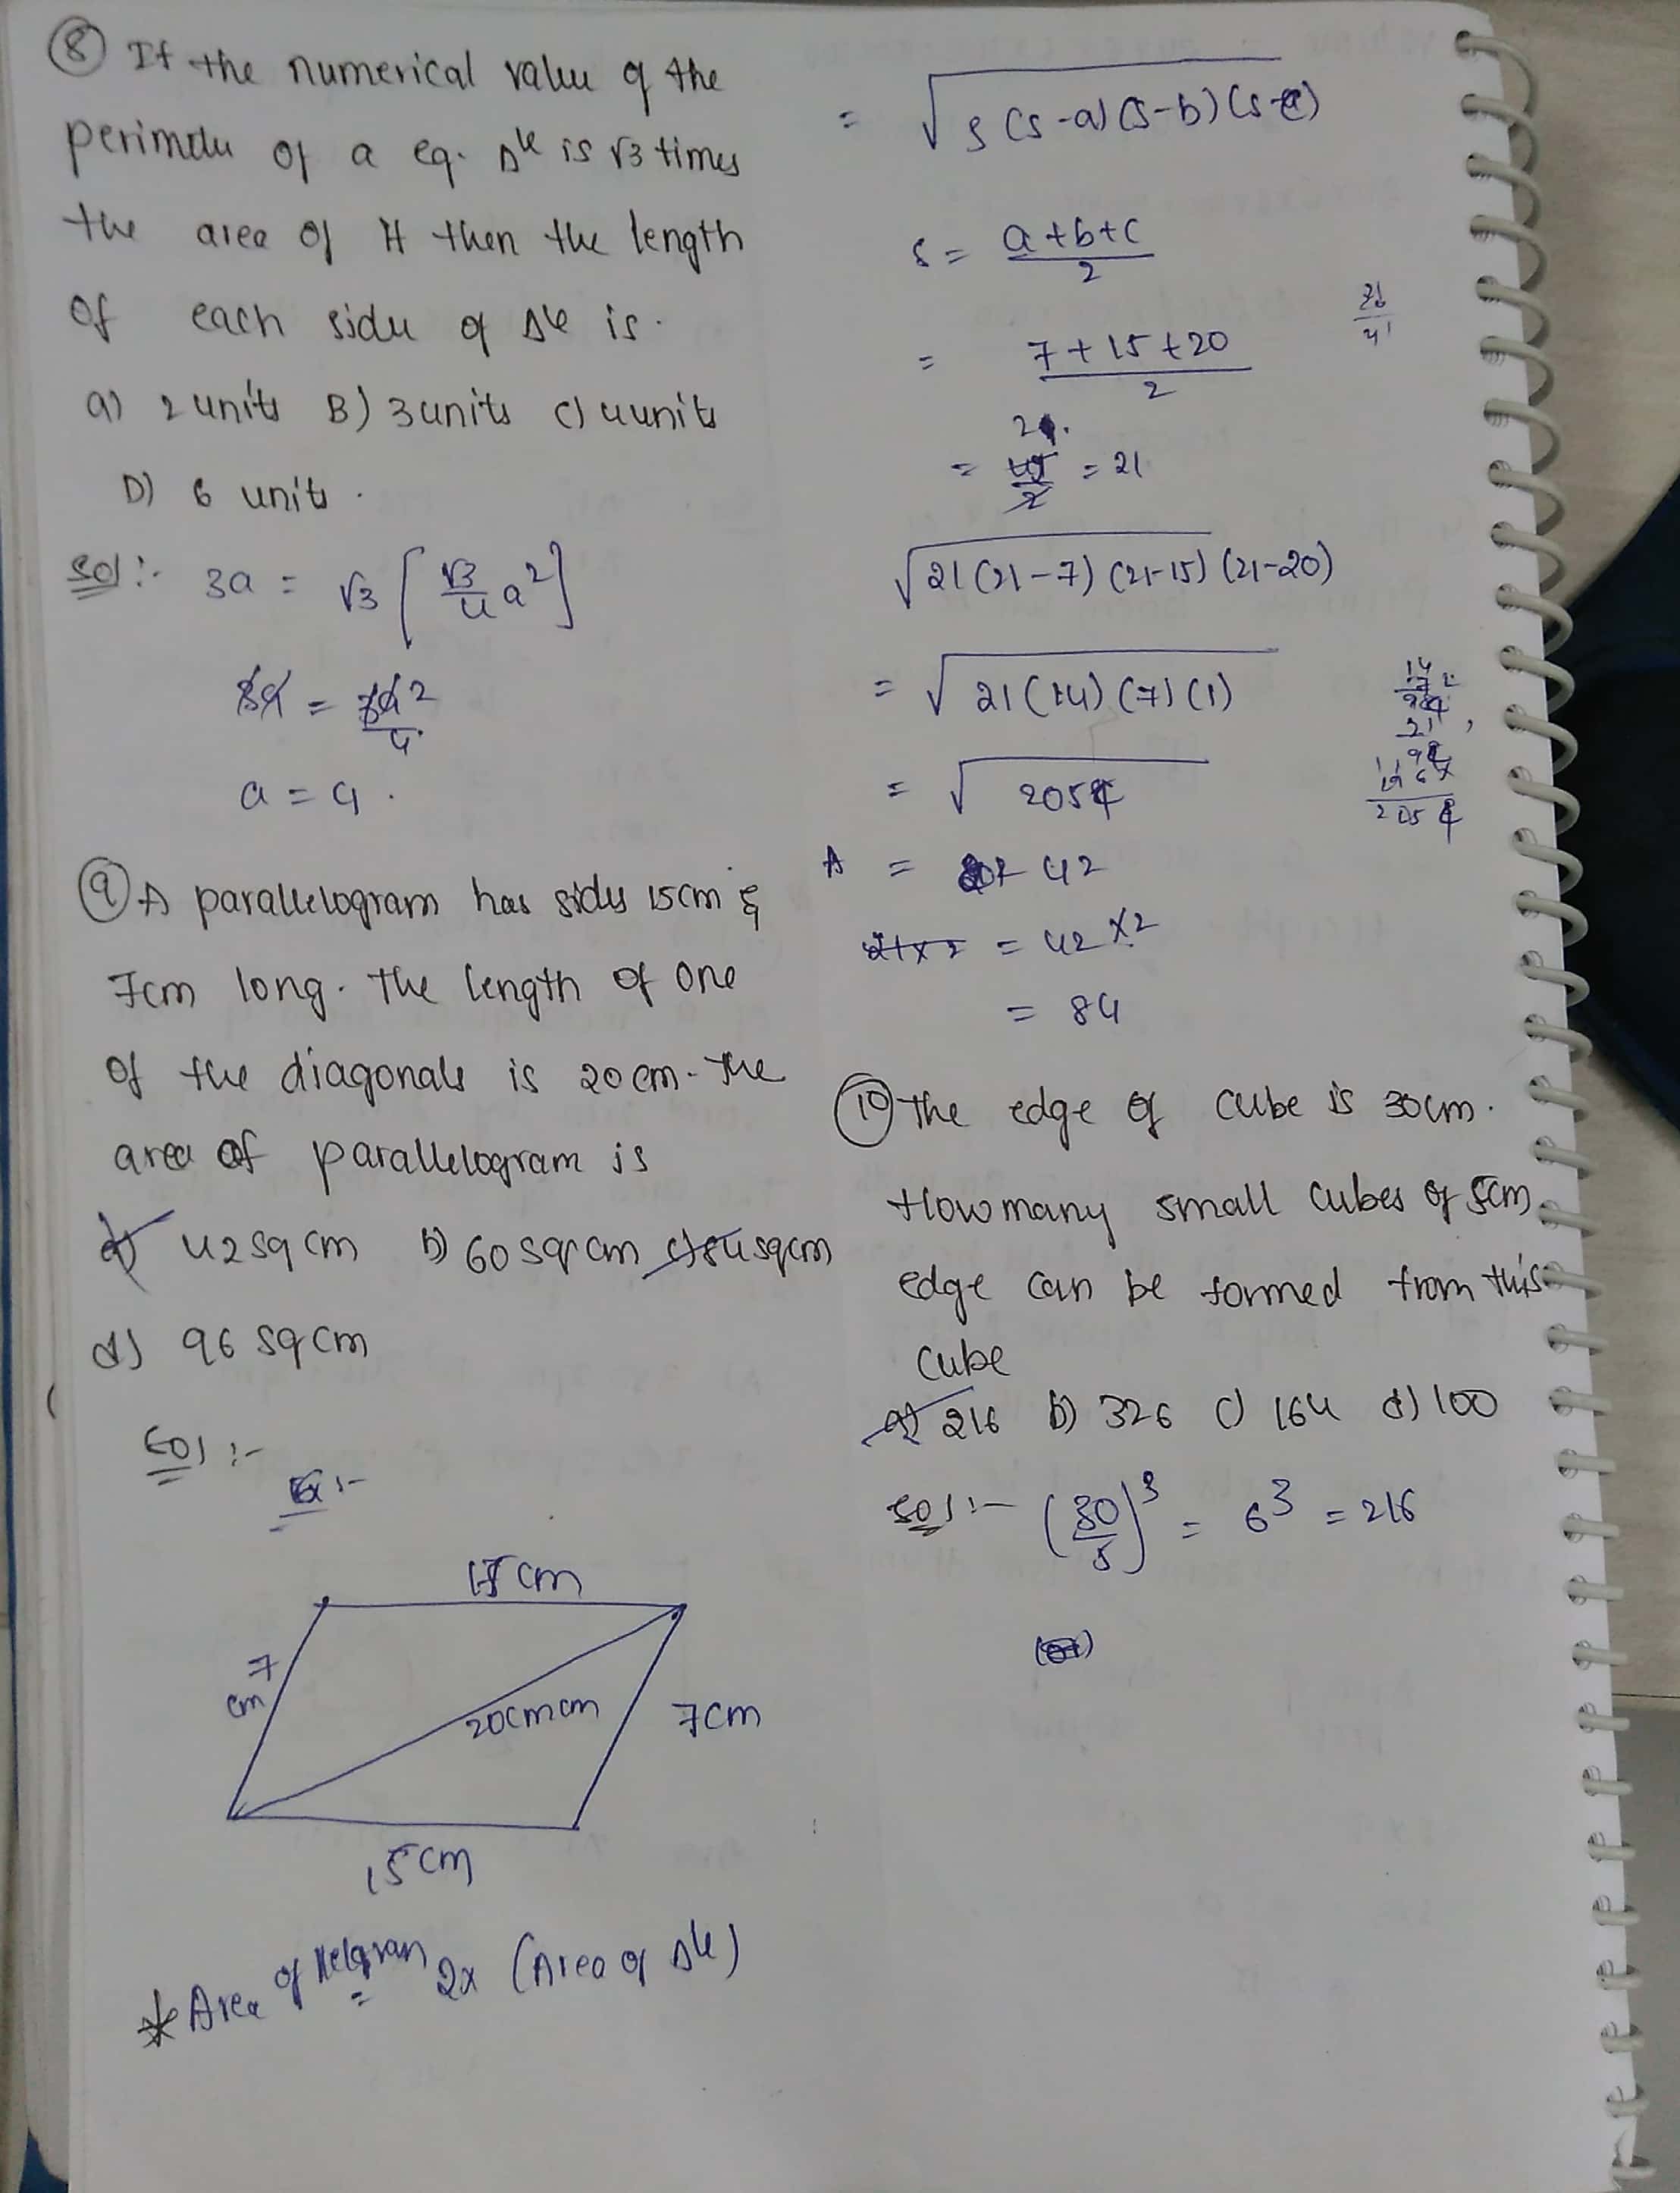 ⑧ If the numerical value of the
perimetu of a eq. Δle is √3 times
the area of it then the length
of each side of Δle is.
a) 2 units B) 3 units c) 4 units
D) 6 units.
Sol :- 3a = √3 [√3/4 a²]
3a = 3a²/4
a = 4.
⑨ A parallelogram has sides 15cm &
7cm long. The length of one
of the diagonals is 20cm. The
area of parallelogram is
a) 42 sq cm b) 60 sq cm c) 84 sqcm
d) 96 sq cm
Sol :-
15 cm
7 cm
20cm cm
7cm
15 cm
* Area of llelgram = 2x (Area of Δle)
= √s(s-a)(s-b)(s-c)
s = a+b+c/2
= 7+15+20/2
21
= 42/2 = 21
√21(21-7)(21-15)(21-20)
= √21(14)(7)(1)
= √2058
A = 42
21x2 = 42 x2
= 84
⑩ The edge of cube is 30cm.
How many small cubes of 5cm
edge can be formed from this
cube
a) 216 b) 326 c) 164 d) 100
Sol :- (30/5)³ = 6³ = 216